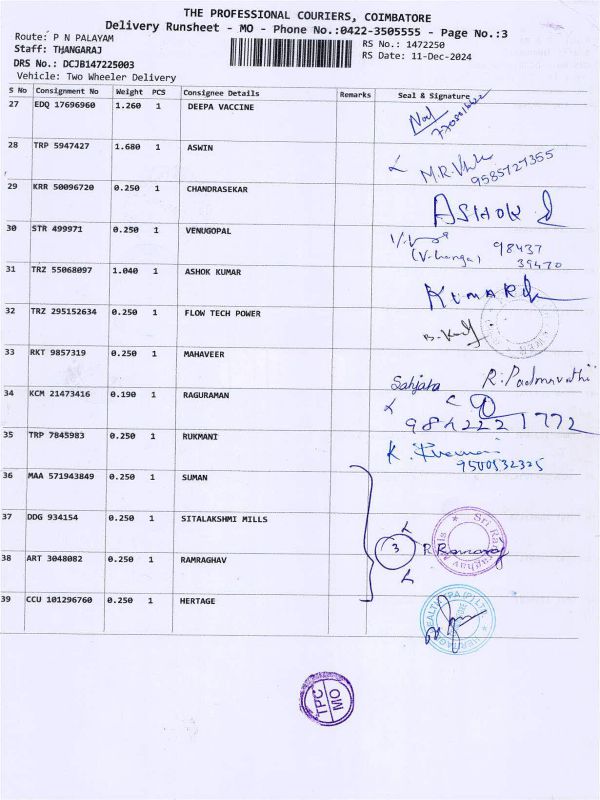 THE PROFESSIONAL COURIERS, COIMBATORE
Delivery Runsheet - MO - Phone No.:0422-3505555 - Page No.:3
Route: P N PALAYAM
RS No.: 1472250
Staff: THANGARAJ
RS Date: 11-Dec-2024
DRS No.: DCJB147225003
Vehicle: Two Wheeler Delivery
S No Consignment No Weight PCS Consignee Details Remarks Seal & Signature
27 EDQ 17696960 1.260 1 DEEPA VACCINE
28 TRP 5947427 1.680 1 ASWIN
9585727355
29 KRR 50096720 0.250 1 CHANDRASEKAR ASHOK
30 STR 499971 0.250 1 VENUGOPAL
98437
39470
31 TRZ 55068097 1.040 1 ASHOK KUMAR KUMAR
32 TRZ 295152634 0.250 1 FLOW TECH POWER
33 RKT 9857319 0.250 1 MAHAVEER
R. Padmavathi
34 KCM 21473416 0.190 1 RAGURAMAN
9842221772
35 TRP 7845983 0.250 1 RUKMANI
9500532325
36 MAA 571943849 0.250 1 SUMAN
37 DDG 934154 0.250 1 SITALAKSHMI MILLS
3
38 ART 3048082 0.250 1 RAMRAGHAV
39 CCU 101296760 0.250 1 HERTAGE
TPC
MO